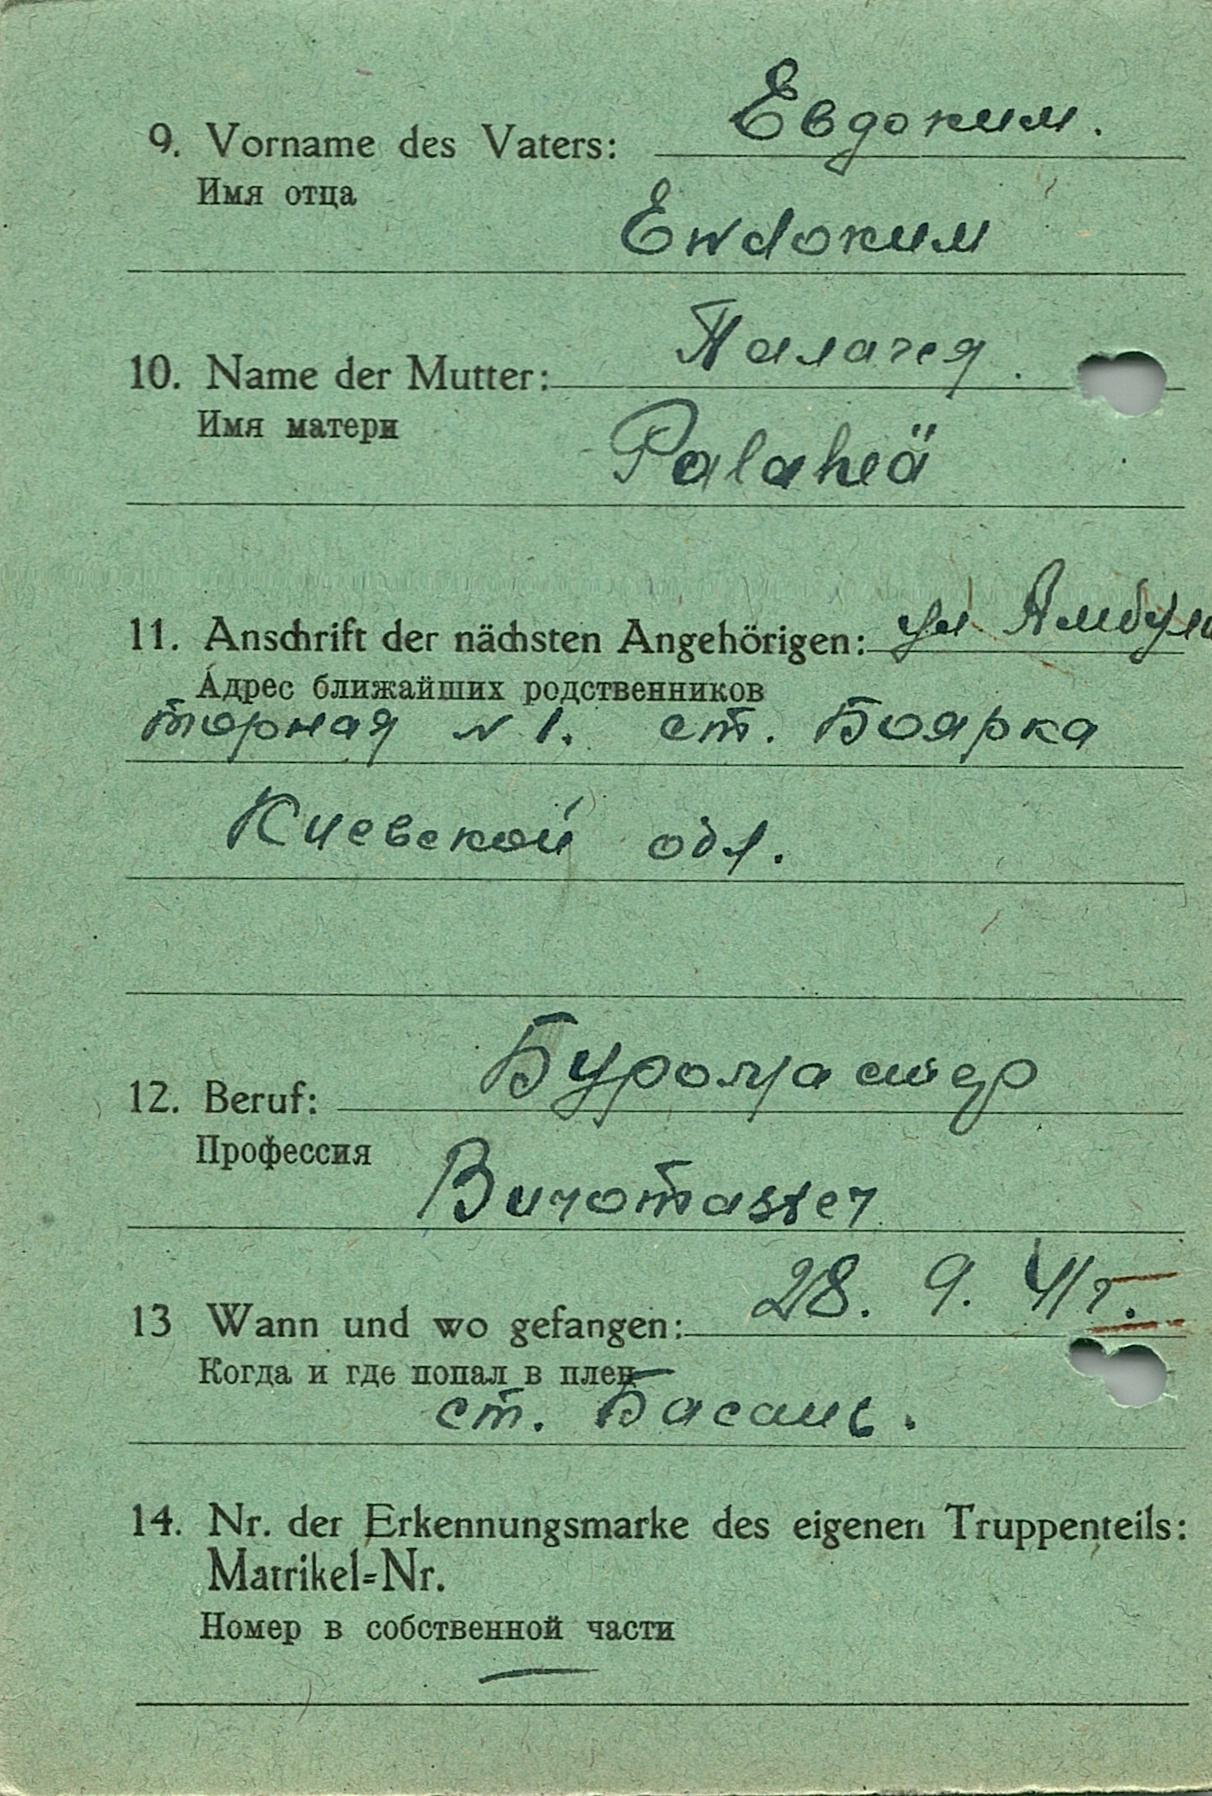 9. Vorname des Vaters: Евдоким.
Имя отца
Ewdoким
10. Name der Mutter: Палагея.
Имя матери
Palaheä
11. Anschrift der nächsten Angehörigen: ул Амбула
Адрес ближайших родственников
торная N 1. ст. Боярка
Киевской обл.
12. Beruf: Буромастер
Профессия
Buromaster
13 Wann und wo gefangen: 28. 9. 41 г.
Когда и где попал в плен
ст. Басань.
14. Nr. der Erkennungsmarke des eigenen Truppenteils:
Matrikel-Nr.
Номер в собственной части
—